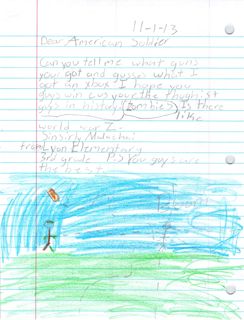 11-1-13
Dear American Soldier
Can you tell me what guns
your got and gusses what I
got an xbox. I hope you
guys win cus you'r the thoughist
guys in history (Zombies) Is there
like
world war Z.
Sinsirly Malachi
from Lyon Elementary
3rd grade P.S You guys are
the best